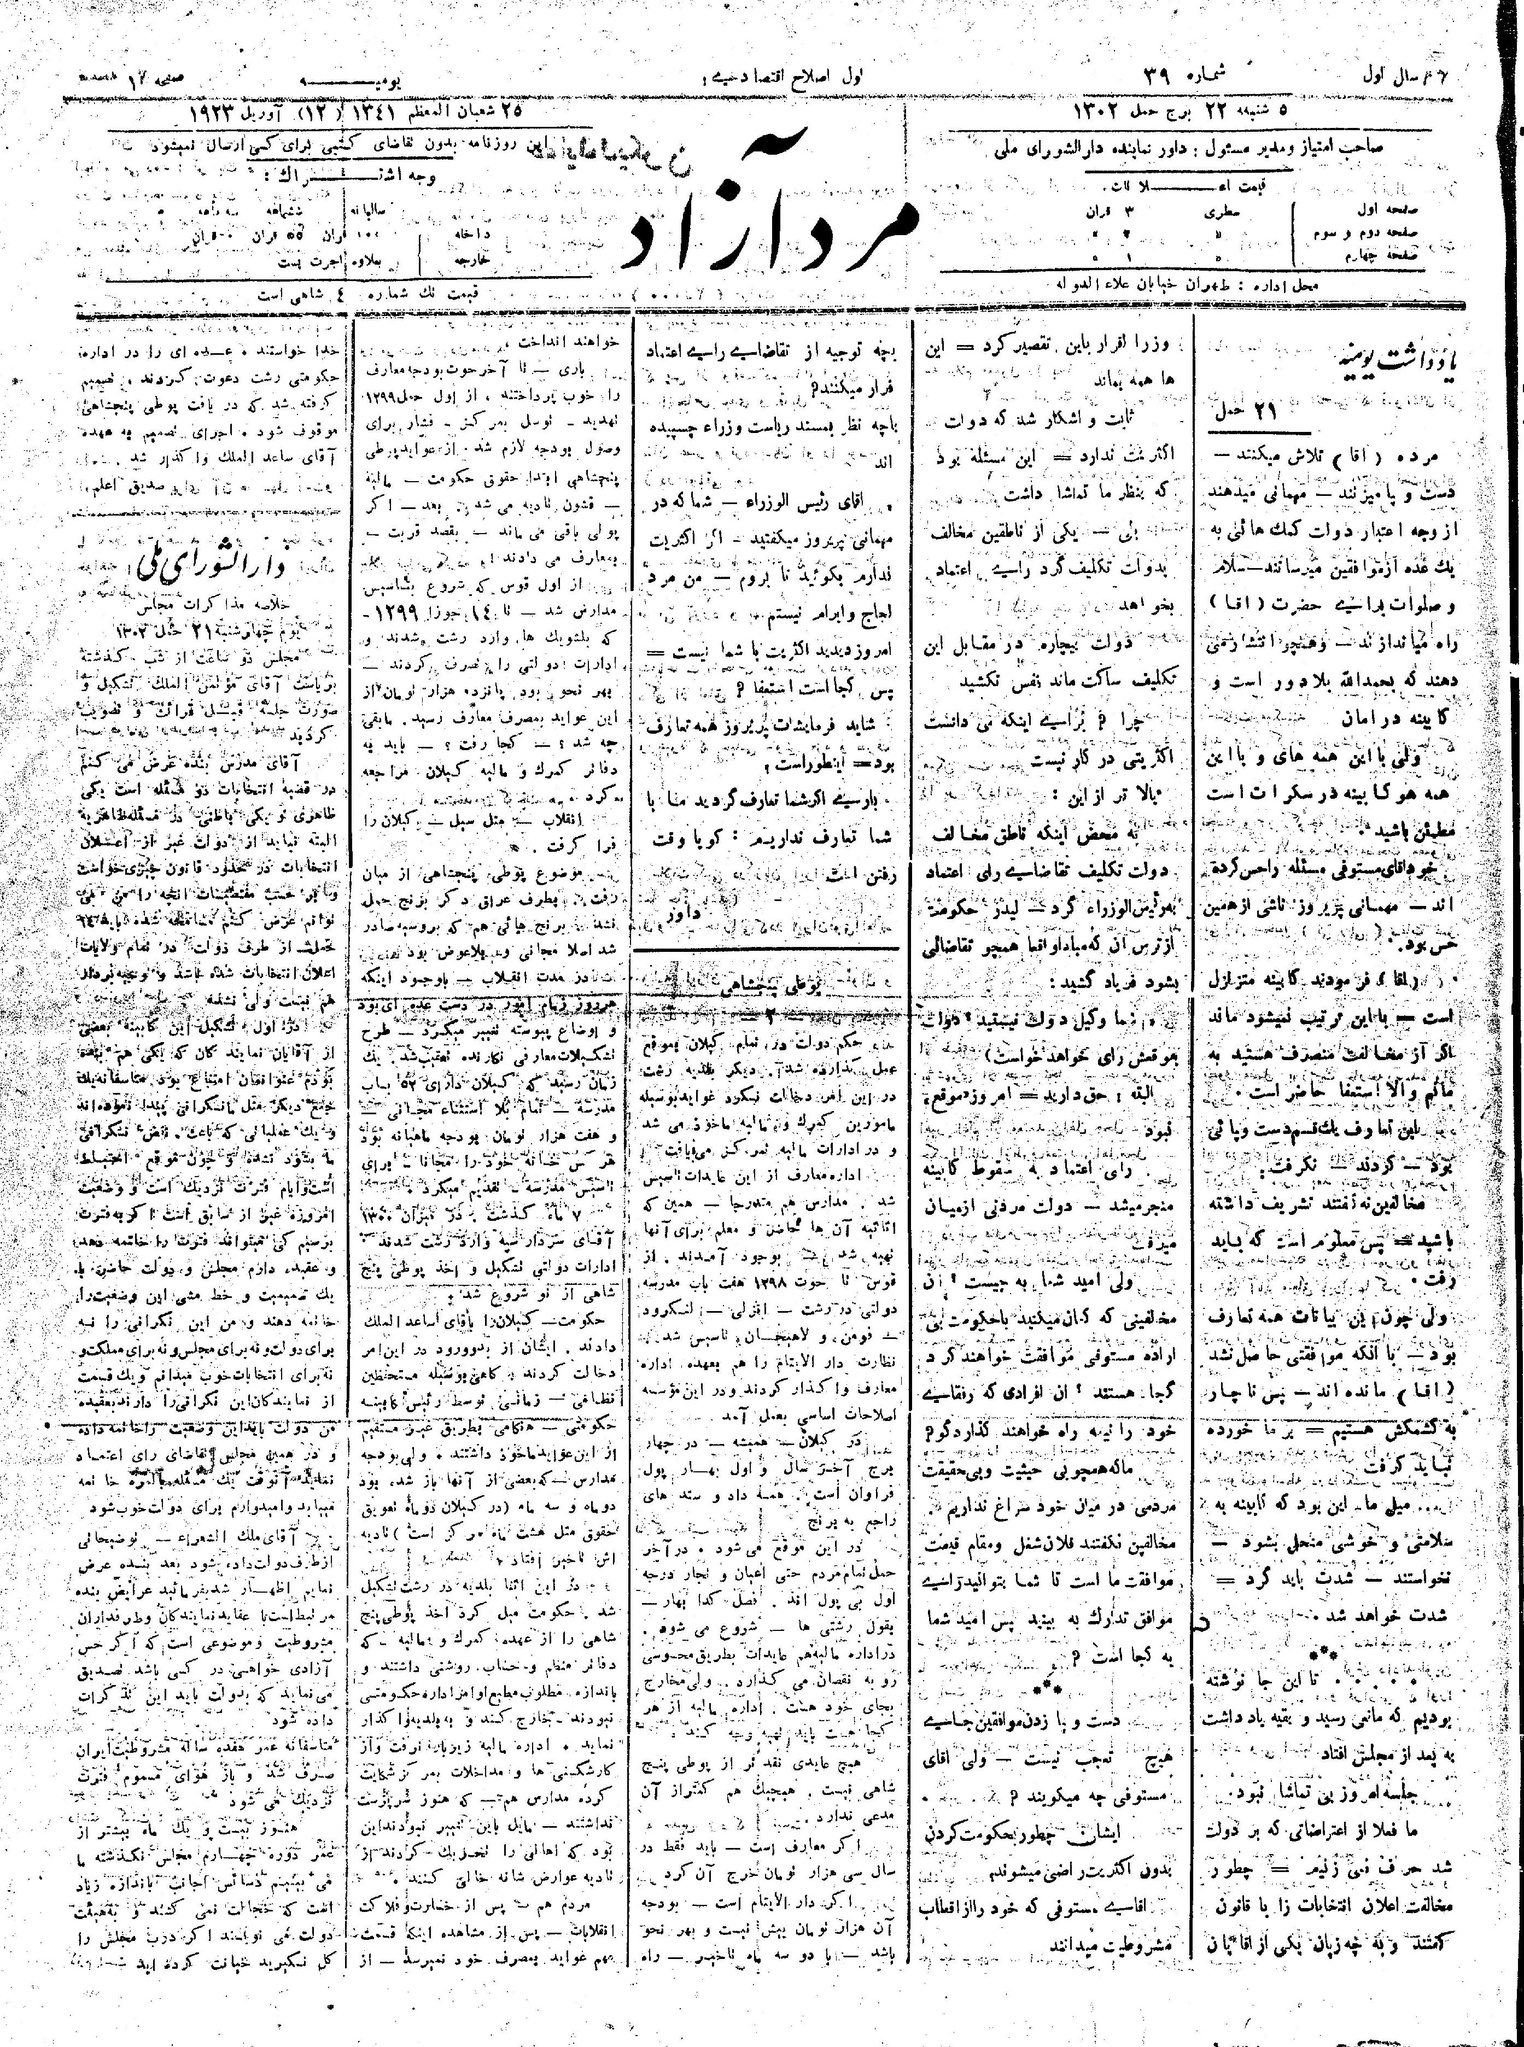 سال اول
شماره ۳۹
اول اصلاح اقتصادی
یومیه
صفحه ۱
۵ شنبه ۲۲ برج حمل ۱۳۰۲
۲۵ شعبان المعظم ۱۳٤۱ (۱۲) آوریل ۱۹۲۳
صاحب امتیاز و مدیر مسئول : داور نماینده دارالشورای ملی
قیمت اعلانات
صفحه اول سطری ۳ قران
صفحه دوم و سوم » ۲ »
صفحه چهارم » ۱ »
محل اداره : طهران خیابان علاء الدوله
مرد آزاد
این روزنامه بدون تقاضای کتبی برای کسی ارسال نمیشود
وجه اشتراك :
سالیانه ششماهه سه ماهه
داخله ۱۰۰ قران ۵۵ قران
خارجه بعلاوه اجرت پست
قیمت تك شماره ٤ شاهی است
یادداشت یومیه
۲۱ حمل
مرده (اقا) تلاش میکنند —
دست و پا میزنند — مهمانی میدهند
از وجه اعتبار دولت کمك هائی به
یك عده از موافقین میرسانند — سلام
و صلوات برای حضرت (اقا)
راه میاندازند — و همچو انتشار می
دهند که بحمدالله بلا دور است و
کابینه در امان
ولی با این همه های و با این
همه هو کابینه در سکرات است
مطمئن باشید
خود اقای مستوفی مسئله را حس کرده
اند — مهمانی پریروز ناشی از همین
حس بود .
(اقا) فرمودید کابینه متزلزل
است — با این ترتیب نمیشود ماند
اگر از مخالفت منصرف هستید به
مانم والا استعفا حاضر است .
این تعارف یك قسم دست و پائی
بود — کردند — نگرفت :
مخالفین نه گفتند تشریف داشته
باشید = پس معلوم است که باید
رفت .
ولی چون این بیانات همه تعارف
بود — با آنکه موافقتی حاصل نشد
(اقا) مانده اند — پس ناچار
به کشمکش هستیم = بر ما خورده
نباید گرفت
میل ما این بود که کابینه به
سلامتی و خوشی منحل بشود —
نخواستند — شدت باید کرد =
شدت خواهد شد .
***
تا این جا نوشته
بودیم که مانعی رسید و بقیه یادداشت
به بعد از مجلس افتاد
جلسه امروز بی تماشا نبود .
ما فعلا از اعتراضاتی که بر دولت
شد حرف نمی زنیم = چطور
مخالفت اعلان انتخابات را با قانون
گفتند و به چه زبان یکی از اقایان
وزرا اقرار باین تقصیر کرد = این
ها همه بماند
ثابت و اشکار شد که دولت
اکثریت ندارد = این مسئله بود
که بنظر ما تماشا داشت
بلی — یکی از ناطقین مخالف
بدولت تکلیف کرد رای اعتماد
بخواهد
دولت بیچاره در مقابل این
تکلیف ساکت ماند نفس نکشید
چرا ? برای اینکه می دانست
اکثریتی در کار نیست
بالا تر از این :
به محض اینکه ناطق مخالف
دولت تکلیف تقاضای رای اعتماد
به رئیس الوزراء کرد — لیدر حکومت
از ترس آن که مبادا واقعا همچو تقاضائی
بشود فریاد کشید :
شما وکیل دولت نیستید ( دولت
بموقعش رای خواهد خواست)
البته ; حق دارید = امروز موقع
نبود
رای اعتماد به سقوط کابینه
منجر میشد — دولت مردنی از میان
میرفت
ولی امید شما به چیست ? آن
مخالفینی که گمان میکنید با حکومت بی
اراده مستوفی موافقت خواهند کرد
کجا هستند ? ان افرادی که رفقای
خود را نیمه راه خواهند گذارد کو ?
ما که همچو بی حیثیت و بی حقیقت
مردمی در میان خود سراغ نداریم .
مخالفین نگفتند فلان شغل و مقام قیمت
موافقت ما است تا شما بتوانید رای
موافق تدارك به بینید پس امید شما
به کجا است ?
***
دست و پا زدن موافقین جای
هیچ تعجب نیست — ولی اقای
مستوفی چه میگویند ?
ایشان چطور بحکومت کردن
بدون اکثریت راضی میشوند
اقای مستوفی که خود را از اقطاب
مشروطیت میدانند
بچه توجیه از تقاضای رای اعتماد
فرار میکنند ?
باچه نظر بمسند ریاست وزراء چسبیده
اند
اقای رئیس الوزراء — شما که در
مهمانی پریروز میگفتید — اگر اکثریت
ندارم بگوئید تا بروم — من مرد
لجاج و ابرام نیستم
امروز دیدید اکثریت با شما نیست =
پس کجا است استعفا ?
شاید فرمایشات پریروز همه تعارف
بود = اینطور است ;
باری اگر شما تعارف کردید ما با
شما تعارف نداریم : گویا وقت
رفتن است
داور
پوطی پنجشاهی
— ۲ —
حکم دولت در تمام گیلان بموقع
عمل گذارده شد . دیگر بلدیه رشت
در این امر دخالت نمیکرد عواید بوسیله
مامورین گمرك و مالیه ماخوذ می شد
و در ادارات مالیه تمرکز می یافت
اداره معارف از این عایدات تاسیس
شد . مدارس هم متدرجا — همین که
اثاثیه آن ها حاضر و معلم برای آنها
تهیه شد بوجود آمدند . از
قوس تا حوت ۱۲۹۸ هفت باب مدرسه
دولتی در رشت — انزلی — لنگرود
— فومن و لاهیجان تاسیس شد .
نظارت دار الایتام را هم بعهده اداره
معارف واگذار کردند و در این مؤسسه
اصلاحات اساسی بعمل آمد
در گیلان — همیشه — در چهار
برج آخر سال و اول بهار پول
فراوان است . همه داد و ستد های
راجع به برنج
در این موقع می شود . در آخر
حمل تمام مردم حتی اعیان و تجار درجه
اول بی پول اند . فصل گدا بهار —
بقول رشتی ها — شروع می شود .
در اداره مالیه هم عایدات بطریق محسوسی
رو به نقصان می گذارد . ولی مخارج
بجای خود هست . اداره مالیه از هر
کجا هست باید تهیه وجه کند
هیچ عایدی نقد تر از پوطی پنج
شاهی نیست . هیچیك هم کمتر از آن
مدعی ندارد .
اگر معارف است — باید فقط در
سال سی هزار تومان خرج آن کرد
اگر دار الایتام است — بودجه
آن هزار تومان بیش نیست و بهر نحو
باشد — با دو سه ماه تاخیر — راه
خواهند انداخت
باری — تا آخر حوت بودجه معارف
را خوب پرداختند . از اول حمل ۱۲۹۹
تهدید — توسل بمرکز — فشار برای
وصول بودجه لازم شد . از عواید پوطی
پنجشاهی ابتدا حقوق حکومت — مالیه
— قشون تادیه می شد بعد — اگر
پولی باقی می ماند — بقصد قربت —
بمعارف می دادند
از اول قوس که شروع بتاسیس
مدارس شد — تا ۱٤ جوزا ۱۲۹۹ —
که بلشویك ها وارد رشت شدند و
ادارات دولتی را تصرف کردند —
بهر نحوی بود پانزده هزار تومان از
این عواید بمصرف معارف رسید . مابقی
چه شد ؟ — کجا رفت ؟ — باید به
دفاتر گمرك و مالیه گیلان مراجعه
کرد .
انقلاب — مثل سیل — گیلان را
فرا گرفت .
موضوع پوطی پنجشاهی از میان
رفت . بطرف عراق دگر برنج حمل
نشد . برنج هائی هم که بروسیه صادر
شد اصلا مجانی و بلاعوض بود
در مدت انقلاب — باوجود اینکه
هر روز زمام امور در دست عده ای بود
و اوضاع پیوسته تغییر میکرد — طرح
تشکیلات معارفی نگارنده تعقیب شد . یك
زمان رسید که گیلان دارای ۵۲ باب
مدرسه — تمام بلا استثناء مجانی —
و هفت هزار تومان بودجه ماهیانه بود
هر کس خانه خود را مجانا — برای
تاسیس مدرسه — تقدیم میکرد .
۷ ماه گذشت . در میزان ۱۳۰۰
آقای سردار سپه وارد رشت شدند .
ادارات دولتی تشکیل و اخذ پوطی پنج
شاهی از نو شروع شد .
حکومت گیلان را بآقای ساعد الملك
دادند . ایشان از بدو ورود در این امر
دخالت کردند . گاهی بوسیله مستحفظین
نظامی — زمانی توسط رئیس کابینه
حکومتی — هنگامی بطریق غیر مستقیم
از این عواید ماخوذ داشتند . ولی بودجه
مدارس — که بعضی از آنها باز شده بود
دوماه و سه ماه (در گیلان دوماه تعویق
حقوق مثل هشت ماه مرکز است) تادیه
اش تاخیر افتاد
در این اثنا بلدیه در رشت تشکیل
شد . حکومت میل کرد اخذ پوطی پنج
شاهی را از عهده گمرك و مالیه — که
دفاتر منظم و حساب روشنی داشتند و
باندازه مطلوب مطیع اوامر اداره حکومتی
نبودند . خارج کند و به بلدیه واگذار
نماید . اداره مالیه زیر بار نرفت و از
کارشکنی ها و مداخلات بمرکز شکایت
کرد . مدارس هم — که هنوز سرپرست
نداشتند — مایل باین تغییر نبودند این
بود که اهالی را تحریك کردند از
تادیه عوارض شانه خالی کنند .
مردم هم — پس از خسارت و فلاکت
انقلابات — پس از مشاهده اینکه قسمت
مهم عواید بمصرف خود نمیرسد — از
خدا خواستند . عده ای را در اداره
حکومتی رشت دعوت کردند . تصمیم
گرفته شد که دریافت پوطی پنجشاهی
موقوف شود . اجرای تصمیم به عهده
آقای ساعد الملك واگذار شد .
صدیق اعلم
دارالشورای ملی
خلاصه مذاکرات مجلس
یوم چهارشنبه ۲۱ حمل ۱۳۰۲
مجلس دو ساعت از شب گذشته
بریاست آقای مؤتمن الملك تشکیل و
صورت جلسه قبل قرائت و تصویب
گردید
آقای مدرس بنده عرض می کنم
در قضیه انتخابات دو مسئله است یکی
ظاهری و یکی باطنی در مسئله ظاهریه
البته نباید از دولت غیر از اعلان
انتخابات در حدود قانون چیزی خواست
توانم عرض کنم مسامحه شده
حمل از طرف دولت در تمام ولایات
اعلان انتخابات شده باشد
هم نیست ولی نشده
در اول تشکیل این کابینه بعضی
از آقایان نمایندگان که یکی هم بنده
بودم عنوانمان امتناع بود . متاسفانه یك
جمع دیگر مثل ما نگرانی پیدا نموده اند
و یك عملیاتی که باعث نقض نگرانی
ما بشود نشده و چون موقع انحطاط
است و ایام فترت نزدیك است و وضعیت
امروزه غیر از سابق است اگر به فترت
برسیم کی میتواند فترت را خاتمه دهد
و عقیده دارم مجلس و دولت حاضره با
یك تصمیمت و خط مشی این وضعیت را
خاتمه دهند و من این نگرانی را نه
برای دولت و نه برای مجلس و نه برای مملکت و
نه برای انتخابات خوب میدانم و یك قسمت
از نمایندگان این نگرانی را دارند بعقیده
من دولت باید این وضعیت را خاتمه داده
و در همین مجلس تقاضای رای اعتماد
نماید آنوقت یك مسئله بالمره خاتمه
میباید و امیدوارم برای دولت خوب شود
آقای ملك الشعراء — توضیحاتی
از طرف دولت داده بشود بعد بنده عرض
نمایم اظهار شد بفرمائید عرایض بنده
مرتبط است با عقاید نمایندگان و طرفداران
مشروطیت و موضوعی است که اگر حس
آزادی خواهی در کسی باشد تصدیق
می نماید که بدولت باید این تذکرات
داده شود
متاسفانه عمر هفده ساله مشروطیت ایران
صرف شد و باز هوای مسموم فترت
نزدیك می شود
هنوز بیست و یك ماه بیشتر از
عمر دوره چهارم مجلس نگذشته ما
می بینیم دسائس اجانب باندازه زیاد
است که خجالت نمی کشند و به هیئت
دولت می نویسند اگر درب مجلس را
گل نگیرید خیانت کرده اید